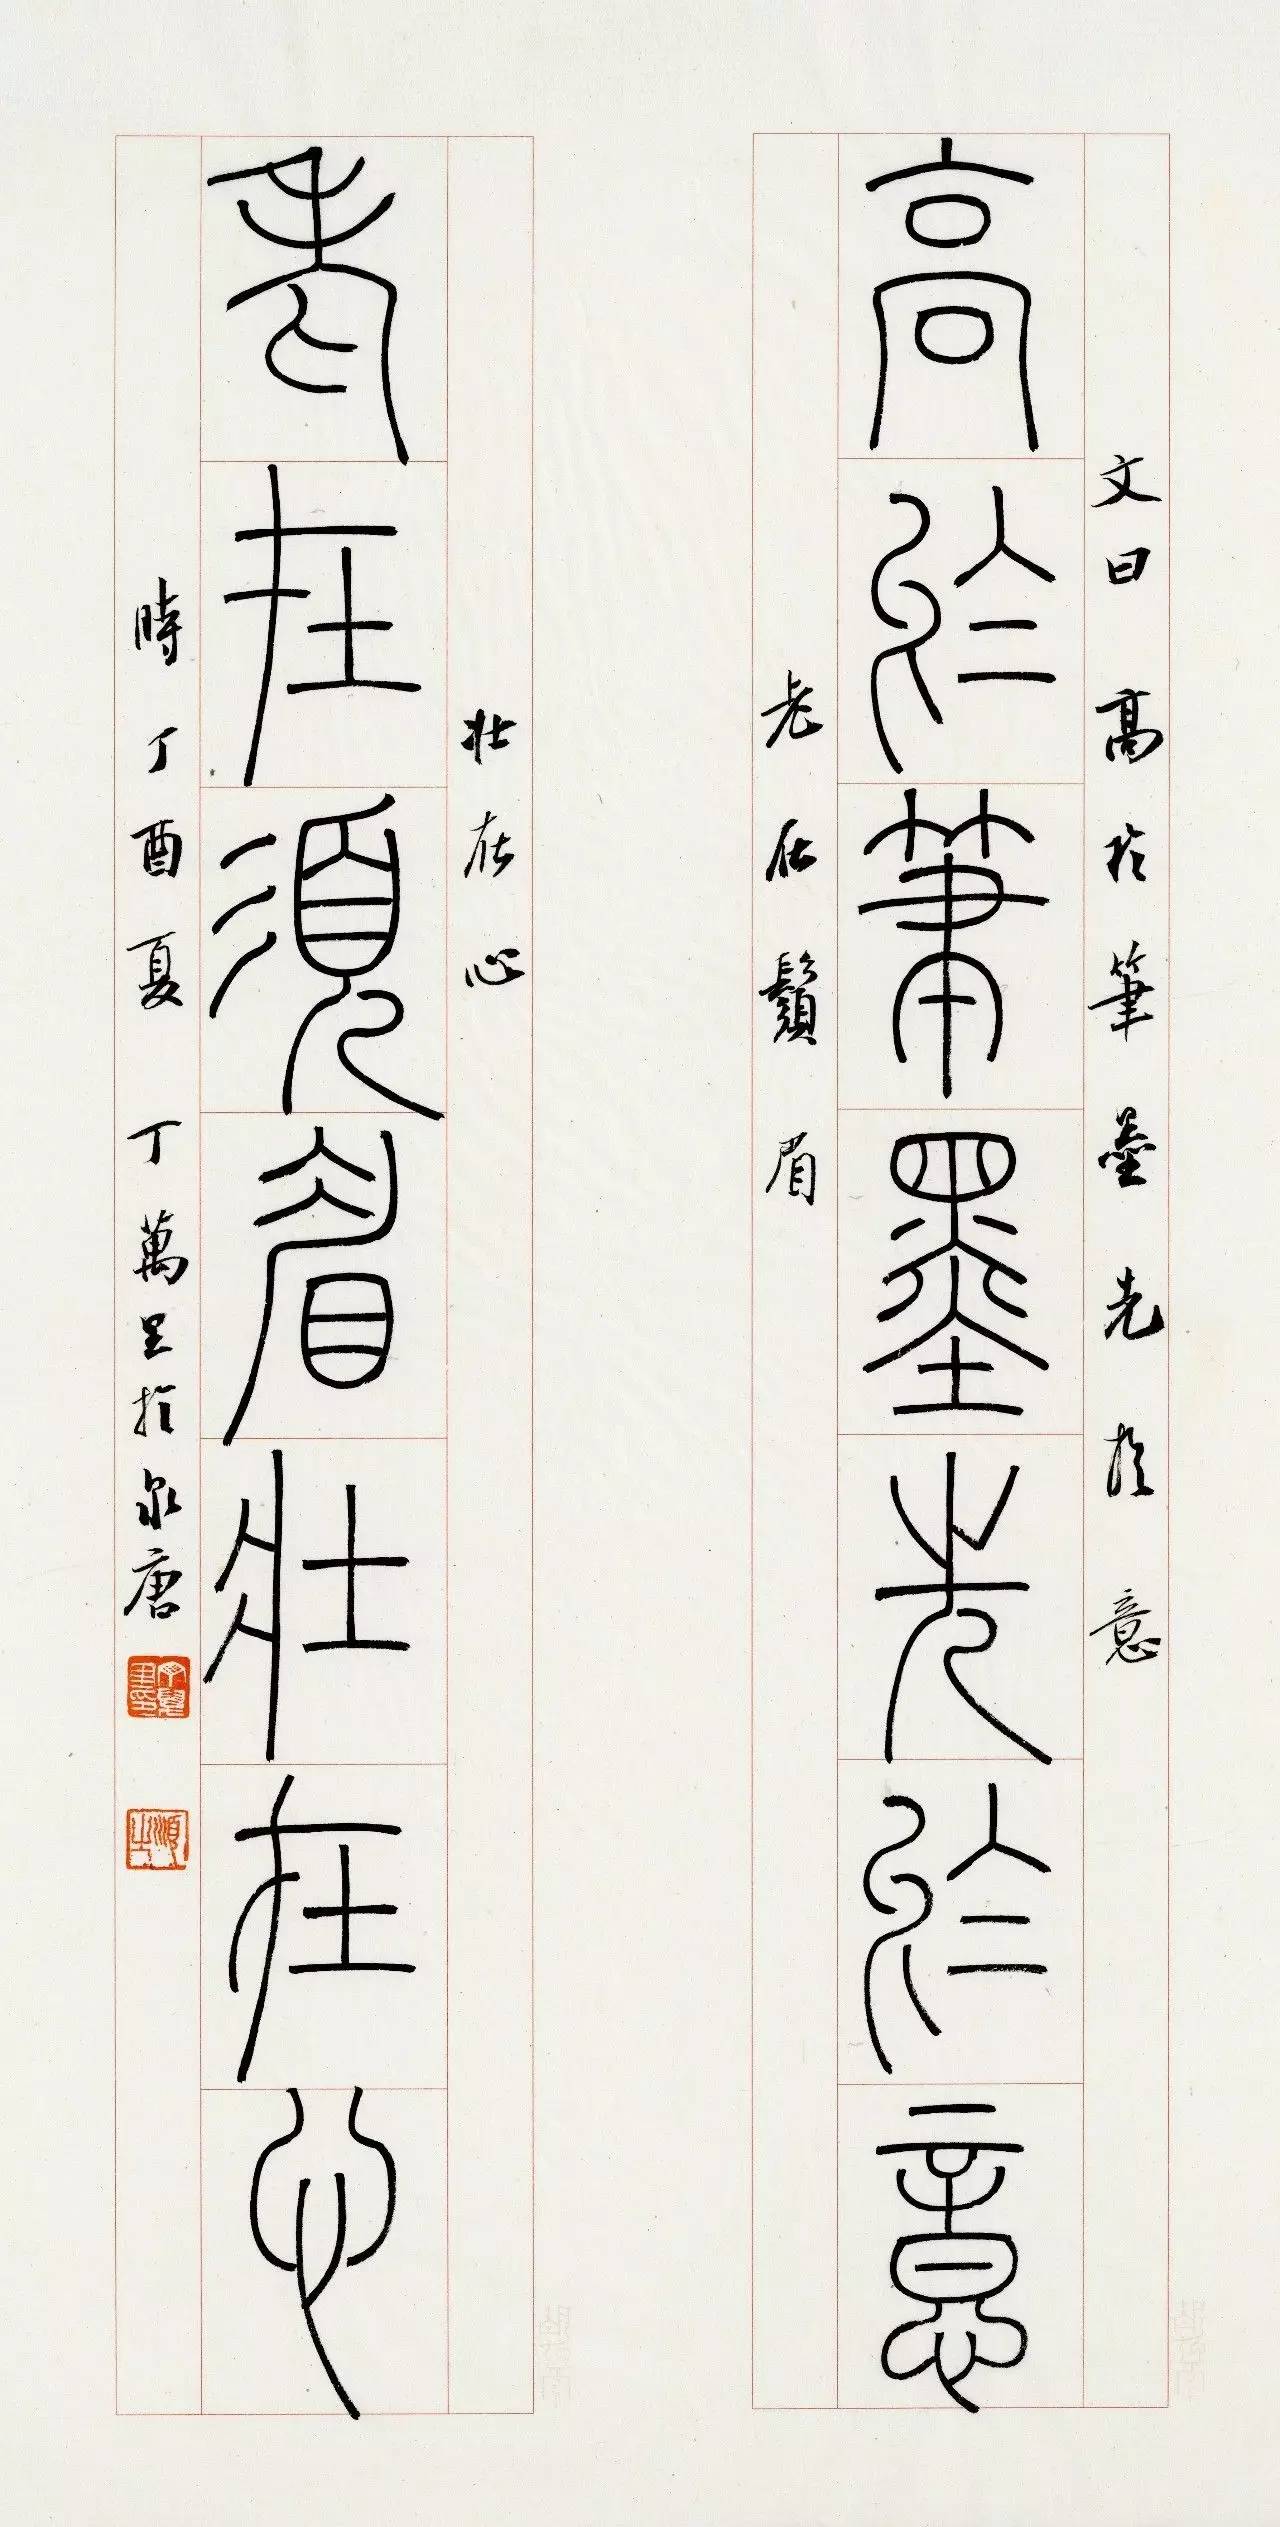 文曰 高於筆墨先於意
高於筆墨先於意
老在鬚眉
壯在心
老在須眉壯在心
時丁酉夏 丁萬里於泉唐